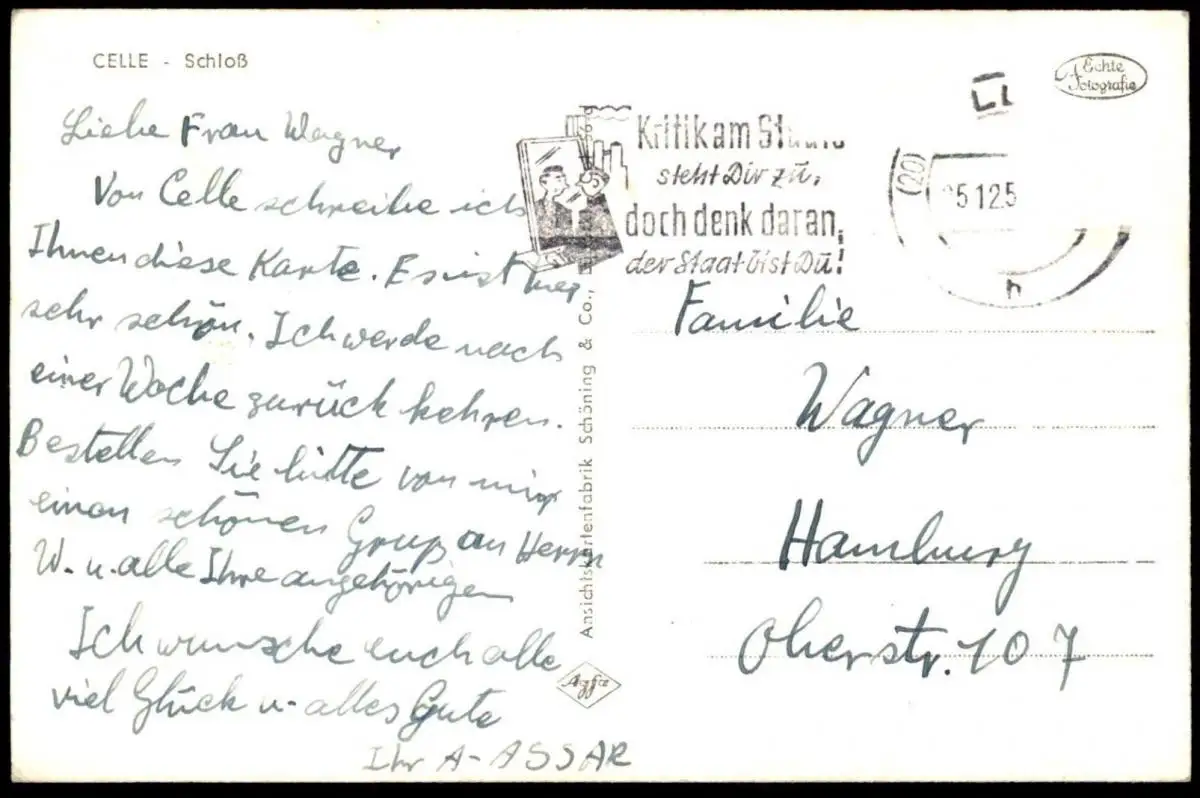 CELLE - Schloß
Liebe Frau Wagner
Von Celle schreibe ich
Ihnen diese Karte. Es ist hier
sehr schön. Ich werde nach
einer Woche zurück kehren.
Bestellen Sie bitte von mir
einen schönen Gruß an Herrn
W. u. alle Ihre angehörigen
Ich wunsche euch alle
viel Glück u. alles Gute
Ihr A-ASSAR
Ansichtskartenfabrik Schöning & Co.,
Agfa
Echte
Fotografie
Kritik am
steht Dir zu,
doch denk daran,
der Staat bist Du!
(20)
5.12.5
h
Familie
Wagner
Hamburg
Oberstr. 107